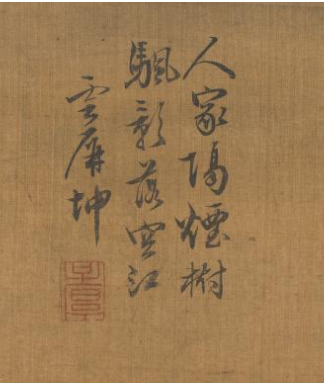 人家隔煙樹
颿影落空江
雲屏坤